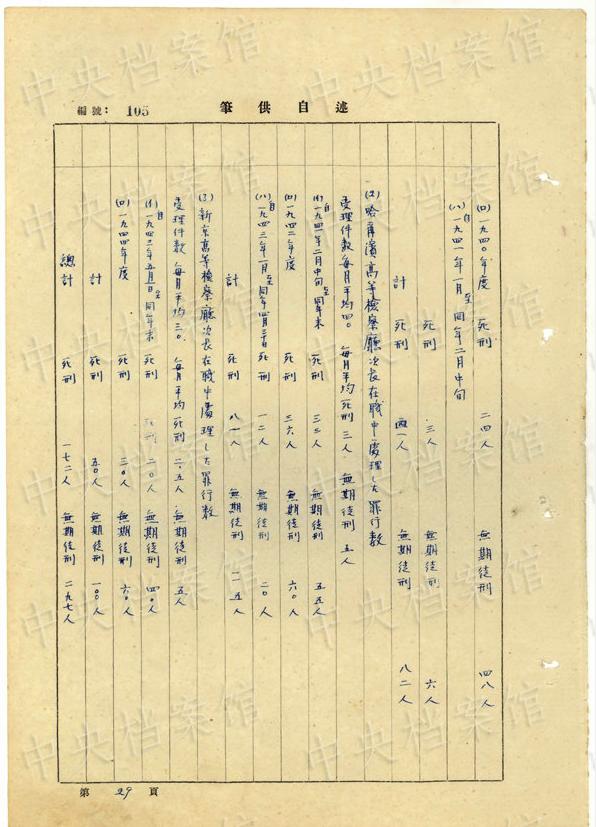 編號: 105
筆供自述
(ロ)一九四〇年度 死刑 二四人 無期徒刑 四八人
(ハ)自一九四一年一月至同年二月中旬
死刑 三人 無期徒刑 六人
計 死刑 四一人 無期徒刑 八二人
(2)哈爾濱高等檢察廳次長在職中處理シタ罪行数
受理件数每月平均四〇. 每月平均死刑 三人 無期徒刑 五人
(イ)自一九四一年二月中旬至同年末 死刑 三三人 無期徒刑 五五人
(ロ)一九四二年度 死刑 三六人 無期徒刑 六〇人
(ハ)自一九四三年一月至同年四月三十日 死刑 一二人 無期徒刑 二〇人
計 死刑 八一人 無期徒刑 一一五人
(3)新京高等檢察廳次長在職中處理シタ罪行数
受理件数 每月平均三〇. 每月平均死刑 二.五人. 無期徒刑 五人
(イ)自一九四三年五月一日至同年末 死刑 二〇人 無期徒刑 四〇人
(ロ)一九四四年度 死刑 三〇人 無期徒刑 六〇人
計 死刑 五〇人 無期徒刑 一〇〇人
總計 死刑 一七二人 無期徒刑 二九七人
第 29 頁
中央档案馆